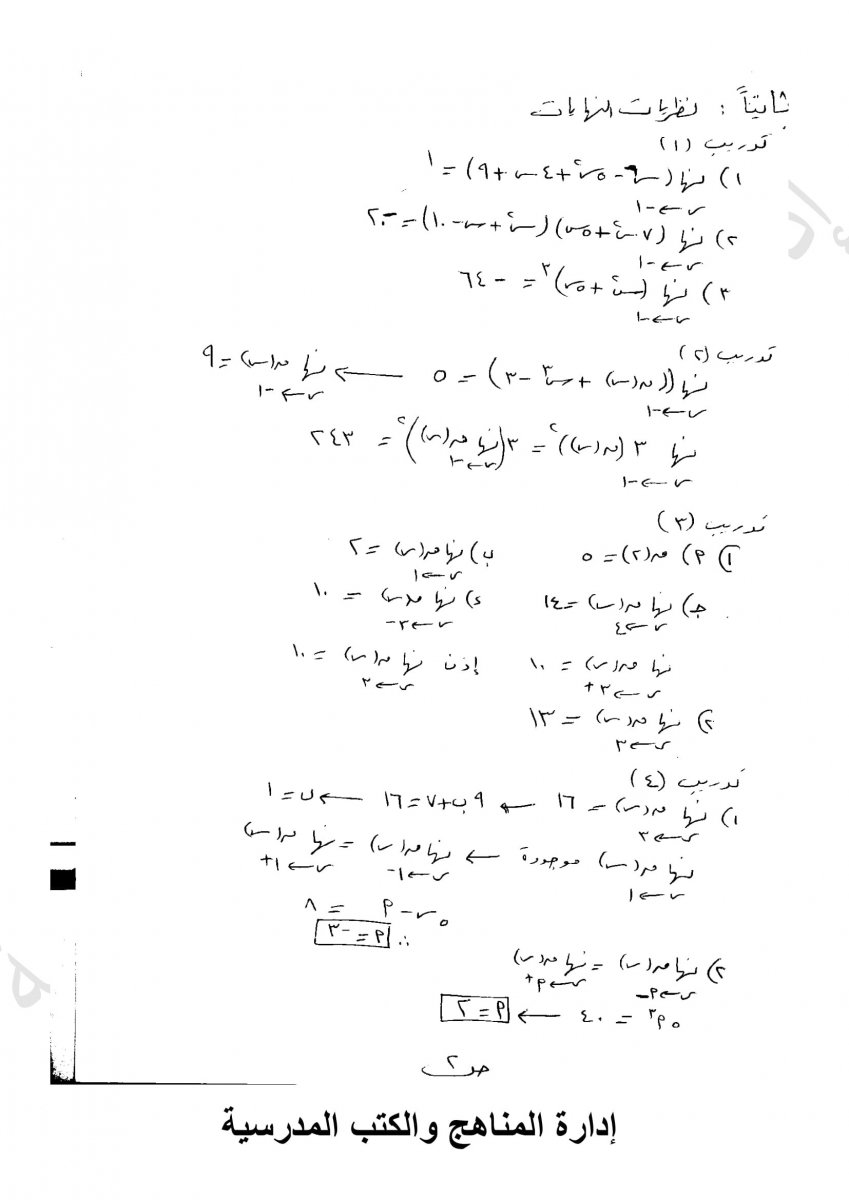 ثانياً : نظريات النهايات
تدريب (١)
١) نها (س٣ - ٥س٢ + ٤س + ٩) = ١
س ← -١
٢) نها (٧س٢ + ٥س) (س٢ + س - ١٠) = -٢٠
س ← -١
٣) نها (س٢ + ٥س)٣ = - ٦٤
س ← -١
تدريب (٢)
نها ((ق(س) + س٣ - ٣) = ٥ ← نها ق(س) = ٩
س ← -١ س ← -١
نها ٣ (ق(س))٢ = ٣(نها ق(س))٢ = ٢٤٣
س ← -١ س ← -١
تدريب (٣)
١) م) ق(٢) = ٥ ب) نها ق(س) = ٢
س ← ١
جـ) نها ق(س) = ١٤ د) نها ق(س) = ١٠
س ← ٤ س ← ٣-
نها ق(س) = ١٠ إذن نها ق(س) = ١٠
س ← ٣+ س ← ٣
٢) نها ق(س) = ١٣
س ← ٣
تدريب (٤)
١) نها ق(س) = ١٦ ← ٩ب + ٧ = ١٦ ← ب = ١
س ← ٣
نها ق(س) موجودة ← نها ق(س) = نها ق(س)
س ← ١ س ← ١- س ← ١+
٥س - م = ٨
∴ م = -٣
٢) نها ق(س) = نها ق(س)
س ← م- س ← م+
٥م٣ = ٤٠ ← م = ٢
صـ ٢
إدارة المناهج والكتب المدرسية